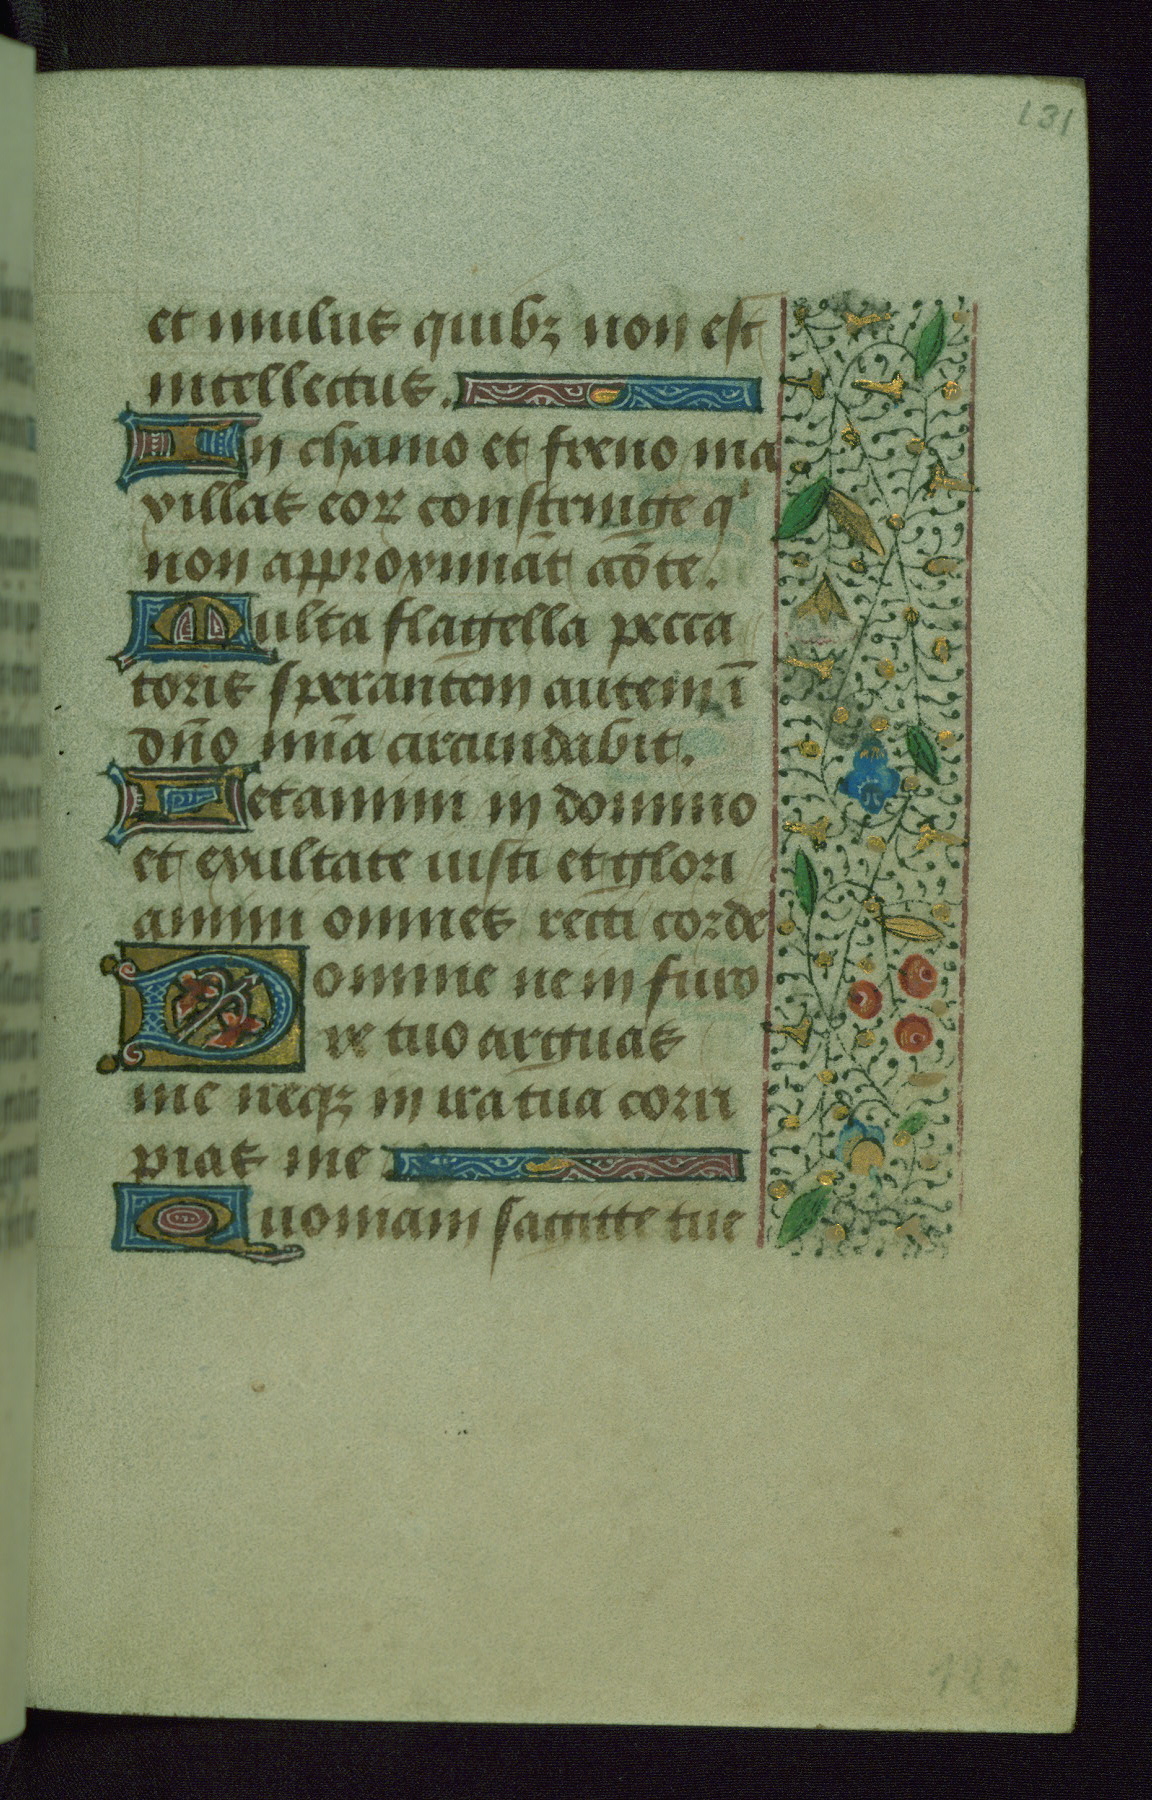 131
et mulus quibꝫ non est
intellectus.
In chamo et freno ma
xillas eoꝝ constringe qͥ
non approximāt adte.
Multa flagella pecca
toris sperantem autem ī
dn̄o mīa circundabit.
Letamini in domino
et exultate iusti et glori
amini omnes recti corde
Domine ne in furo
re tuo arguas
me neqꝫ in ira tua corri
pias me
Quoniam sagitte tue